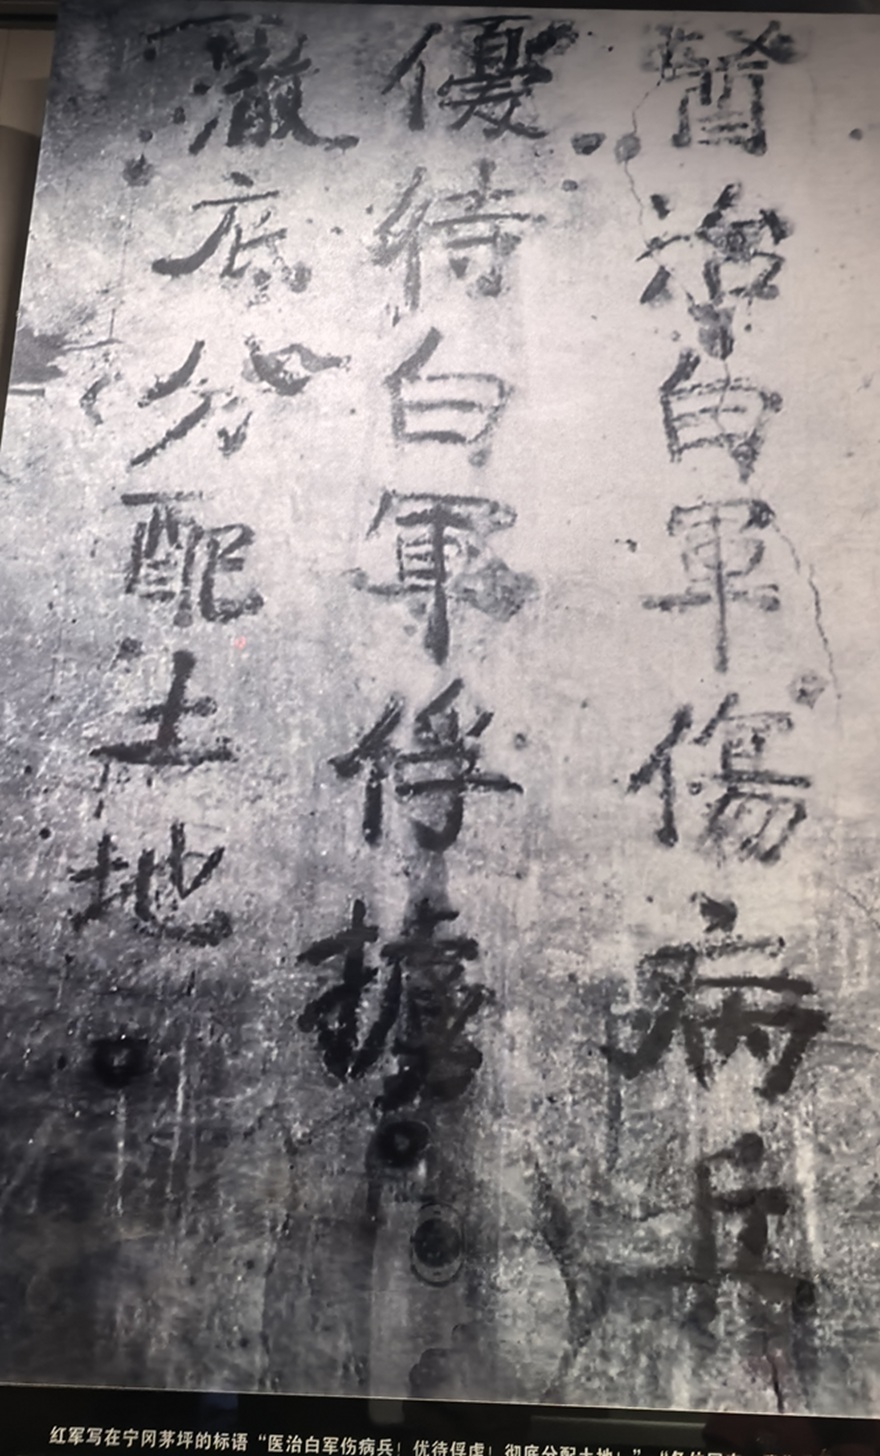 醫治白軍傷病兵
優待白軍俘擄。
澈底分配土地。
红军写在宁冈茅坪的标语“医治白军伤病兵！优待俘虏！彻底分配土地！”